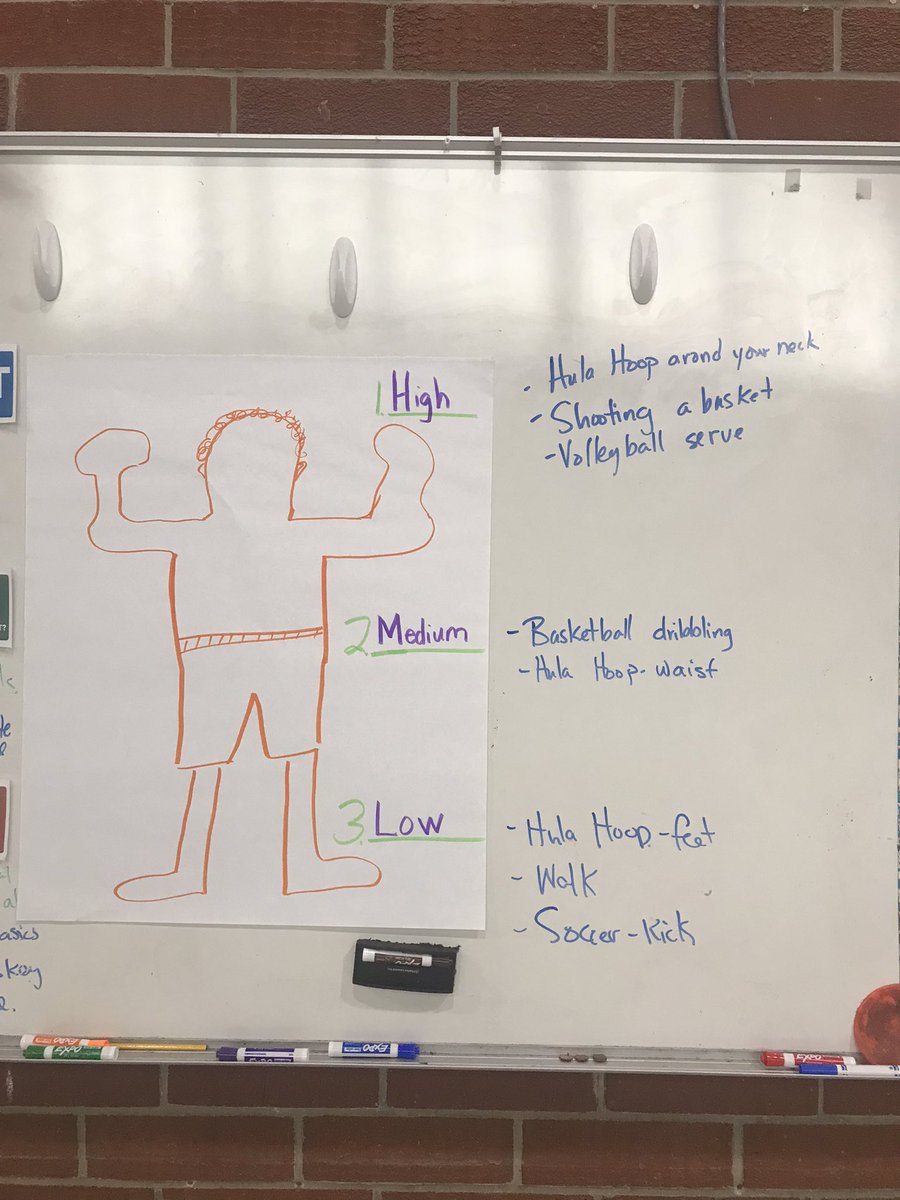 T
1. High
- Hula Hoop arond your neck
- Shooting a basket
- Volleyball serve
2. Medium
- Basketball dribbling
- Hula Hoop - waist
3. Low
- Hula Hoop - feet
- Walk
- Soccer - Kick
EXPO
EXPO